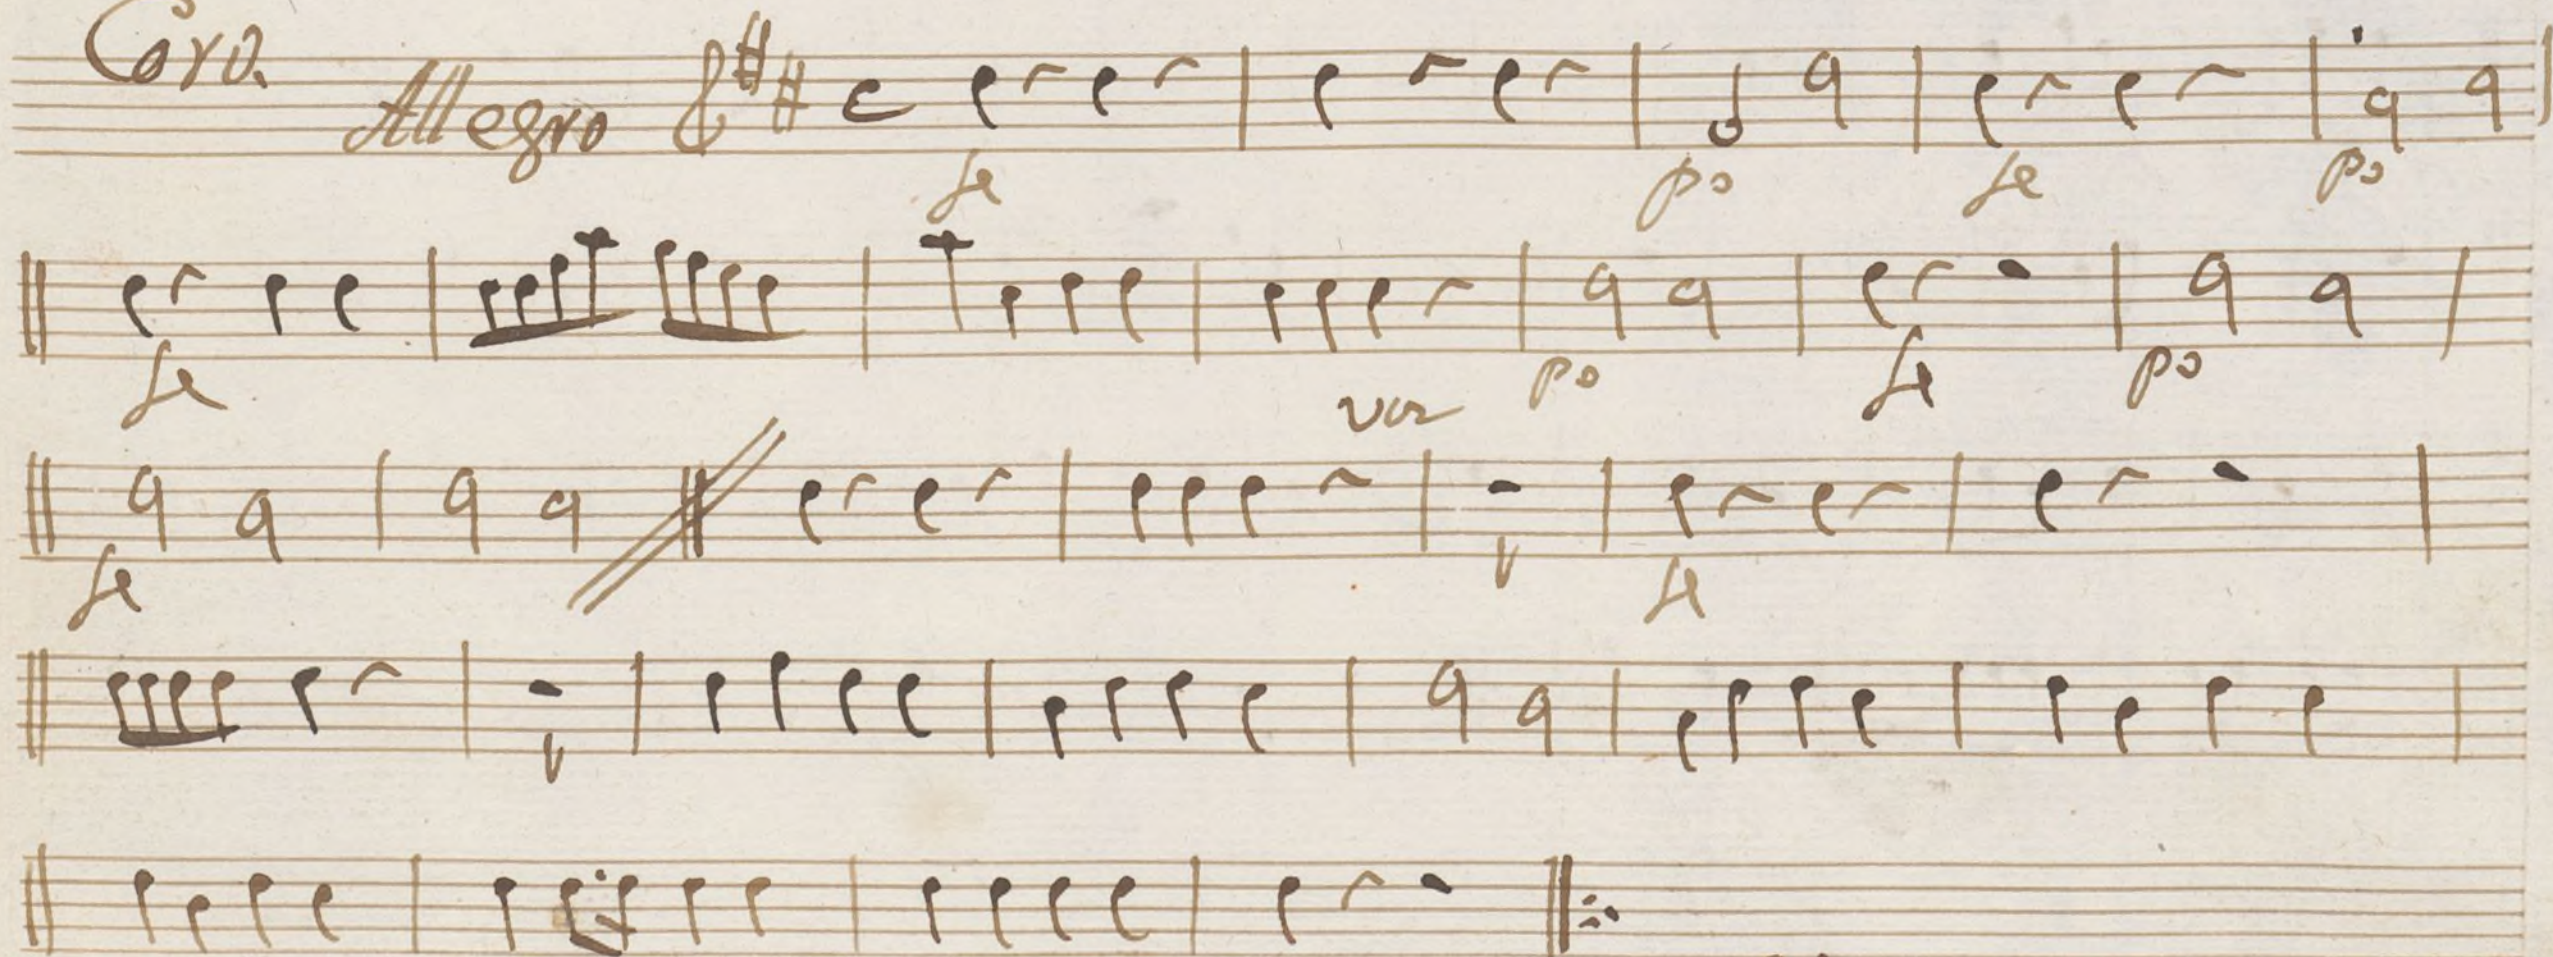 Coro.
Allegro
fe po fe po
fe voz po fe po
fe fe